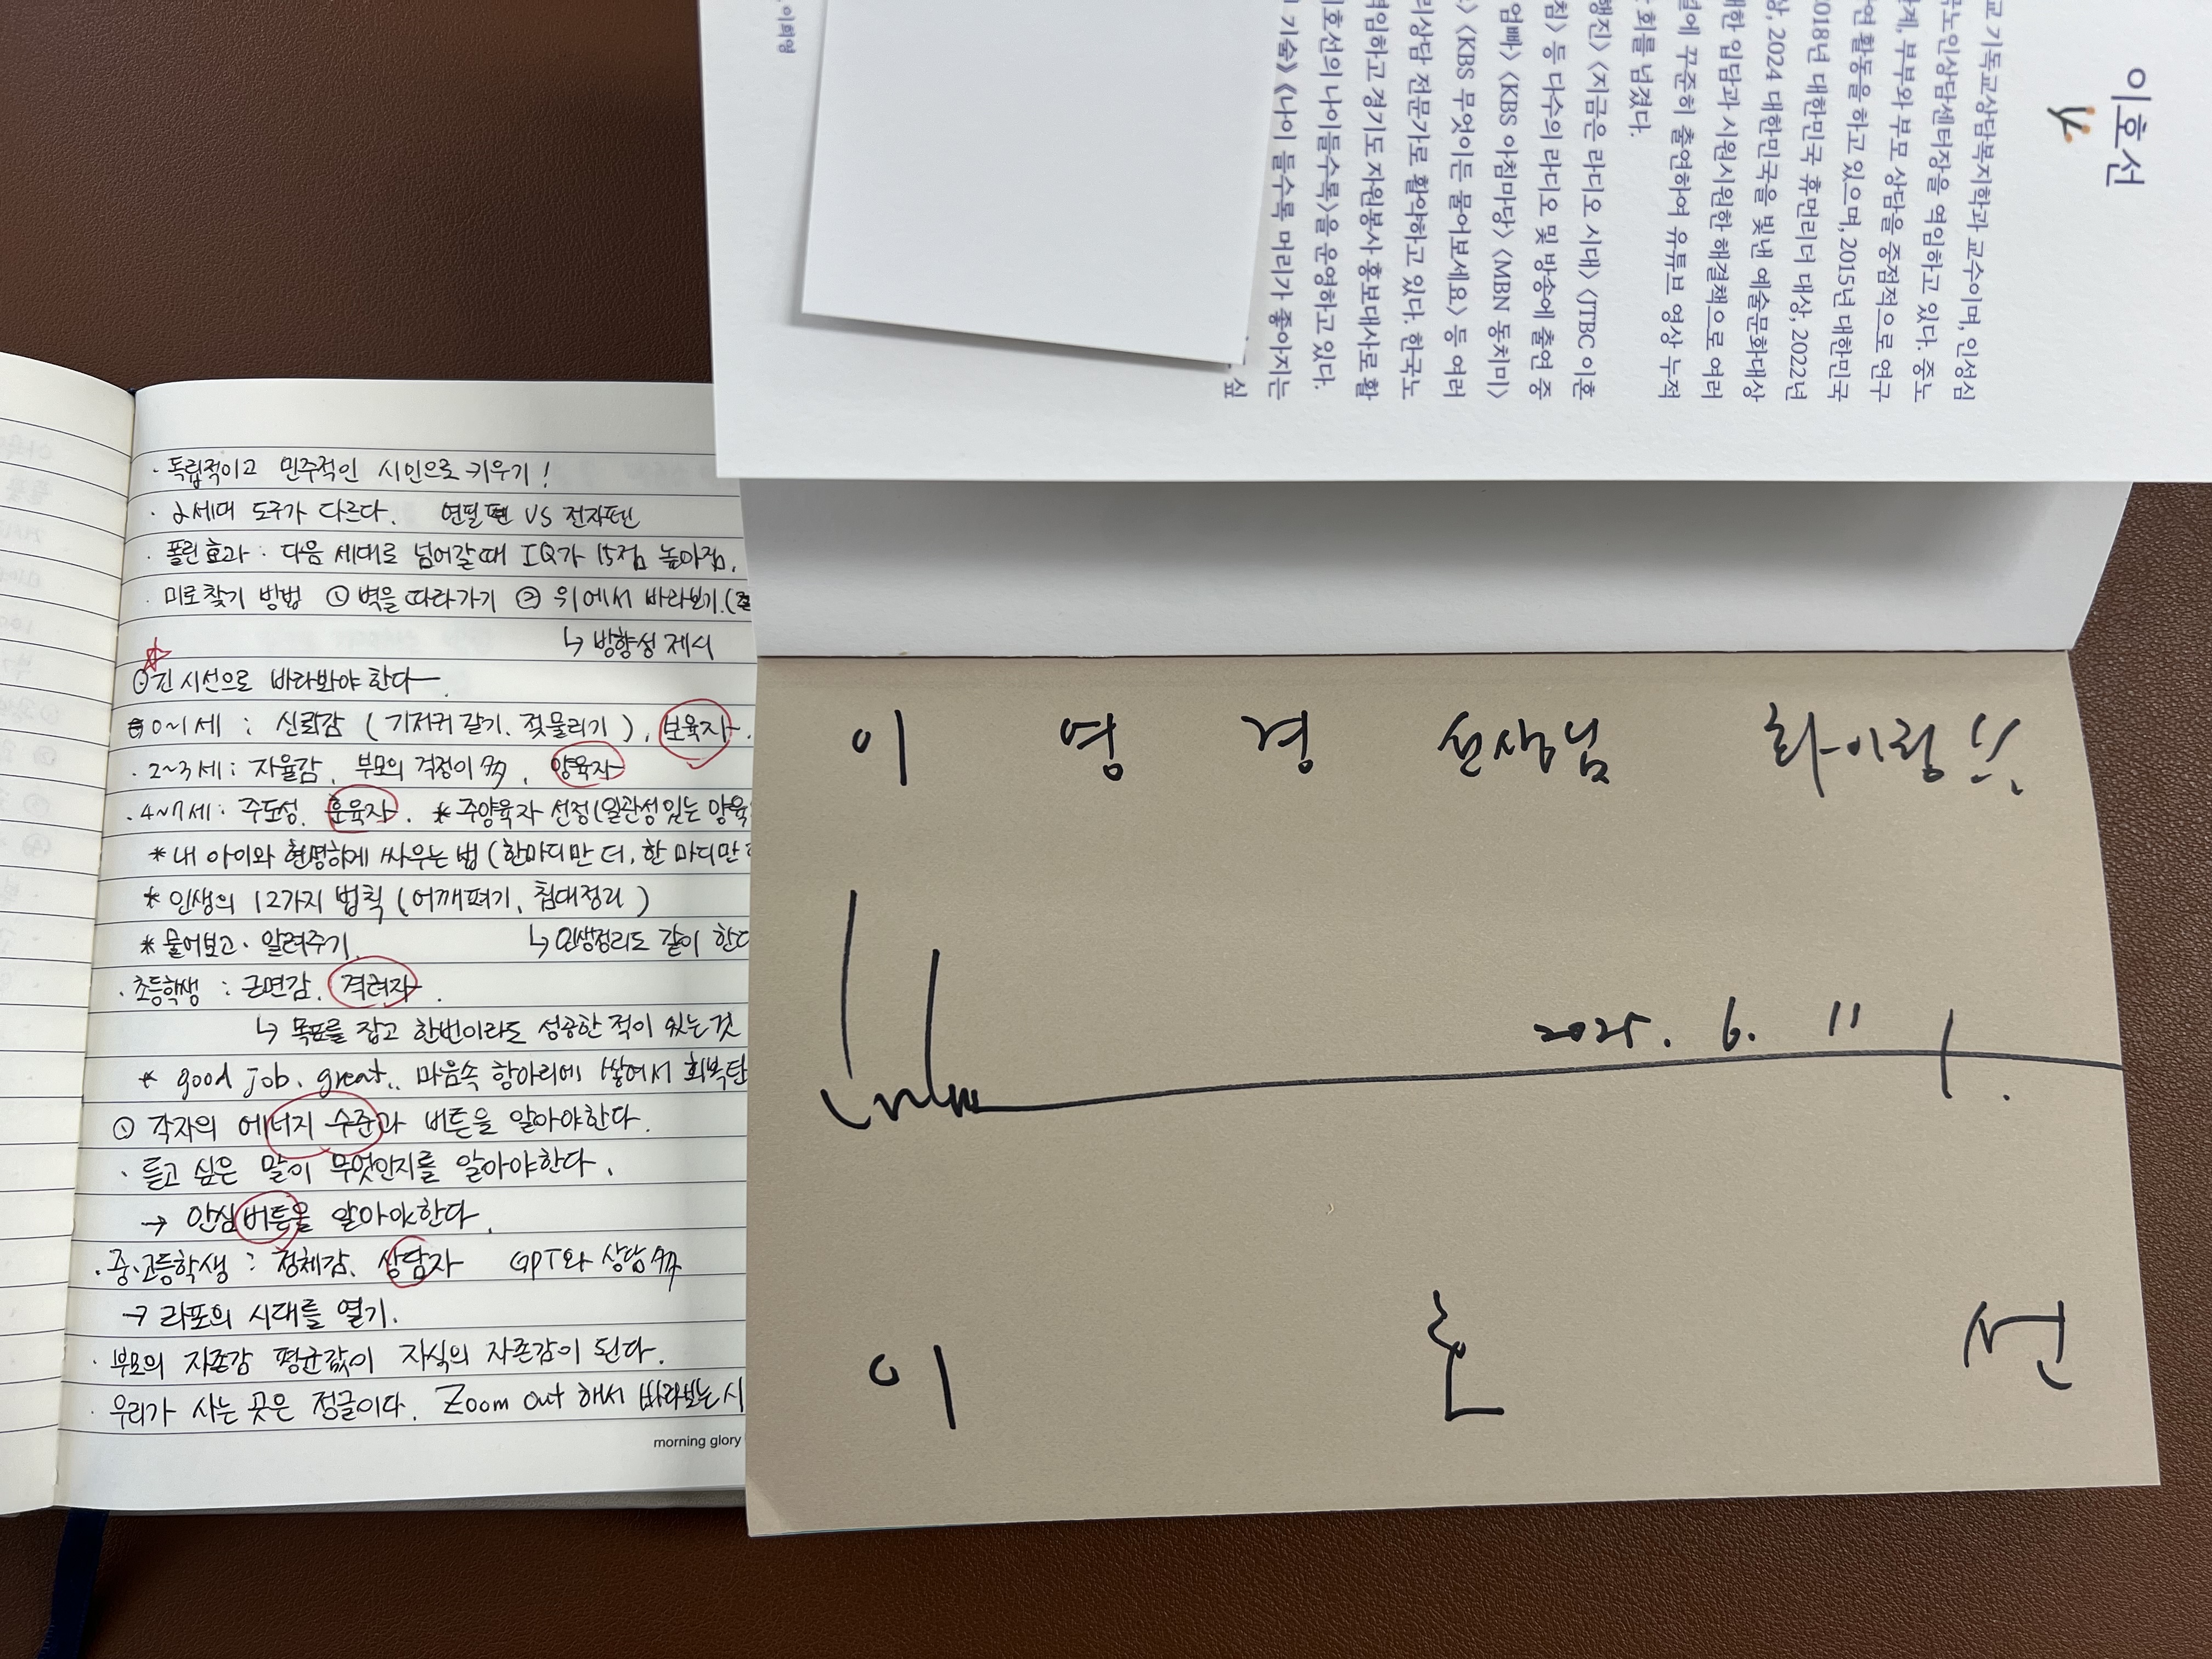 · 독립적이고 민주적인 시민으로 키우기!
· 2세대 도구가 다르다. 연필펜 VS 전자펜
· 플린효과 : 다음 세대로 넘어갈때 IQ가 15점 높아짐.
· 미로찾기 방법 ① 벽을 따라가기 ② 위에서 바라보기.(
↳ 방향성 제시
☆
긴 시선으로 바라봐야 한다
0~1세 : 신뢰감 (기저귀 갈기. 젖물리기), 보육자.
· 2~3세: 자율감, 부모의 걱정이 多, 양육자
· 4~7세: 주도성. 훈육자. * 주양육자 선정(일관성있는 양육
* 내 아이와 현명하게 싸우는 법 (한마디만 더, 한 마디만
* 인생의 12가지 법칙 (어깨펴기, 침대정리)
* 물어보고· 알려주기. ↳ 인생정리도 같이 한다
· 초등학생 : 근면감. 격려자.
↳ 목표를 잡고 한번이라도 성공한 적이 있는 것
* good job. great.. 마음속 항아리에 쌓여서 회복탄
① 각자의 에너지 수준과 버튼을 알아야한다.
· 듣고 싶은 말이 무엇인지를 알아야한다.
→ 안심버튼을 알아야한다.
· 중·고등학생 : 정체감. 상담자 GPT와 상담 多
→ 라포의 시대를 열기.
· 부모의 자존감 평균값이 자식의 자존감이 된다.
· 우리가 사는 곳은 정글이다. Zoom out 해서 바라보는 시
morning glory
이호선
교 기독교상담복지학과 교수이며, 인성심
노인상담센터장을 역임하고 있다. 중노
계, 부부와 부모 상담을 중점적으로 연구
연 활동을 하고 있으며, 2015년 대한민국
2018년 대한민국 휴먼리더 대상, 2022년
상, 2024 대한민국을 빛낸 예술문화대상
한 입담과 시원시원한 해결책으로 여러
에 꾸준히 출연하여 유튜브 영상 누적
회를 넘겼다.
행진〉 〈지금은 라디오 시대〉 〈JTBC 이혼
침〉 등 다수의 라디오 및 방송에 출연 중
엄빠〉 〈KBS 아침마당〉 〈MBN 동치미〉
〉 〈KBS 무엇이든 물어보세요〉 등 여러
리상담 전문가로 활약하고 있다. 한국노
역임하고 경기도 자원봉사 홍보대사로 활
이호선의 나이들수록〉을 운영하고 있다.
기술》 《나이 들수록 머리가 좋아지는
싶
이희영
이 영 경 선생님 화이팅!!
2025. 6. 11
이 호 선